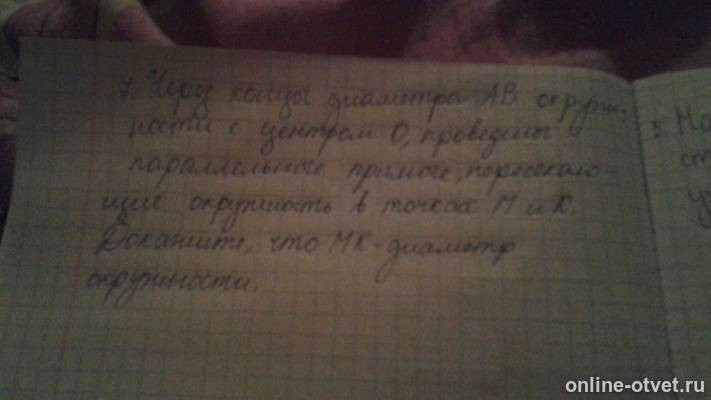 7. Через концы диаметра АВ окруж-
ности с центром О, проведены
параллельные прямые, пересекаю-
щие окружность в точках М и К.
Докажите, что МК-диаметр
окружности.
5. Мо
ст
уг
online-otvet.ru